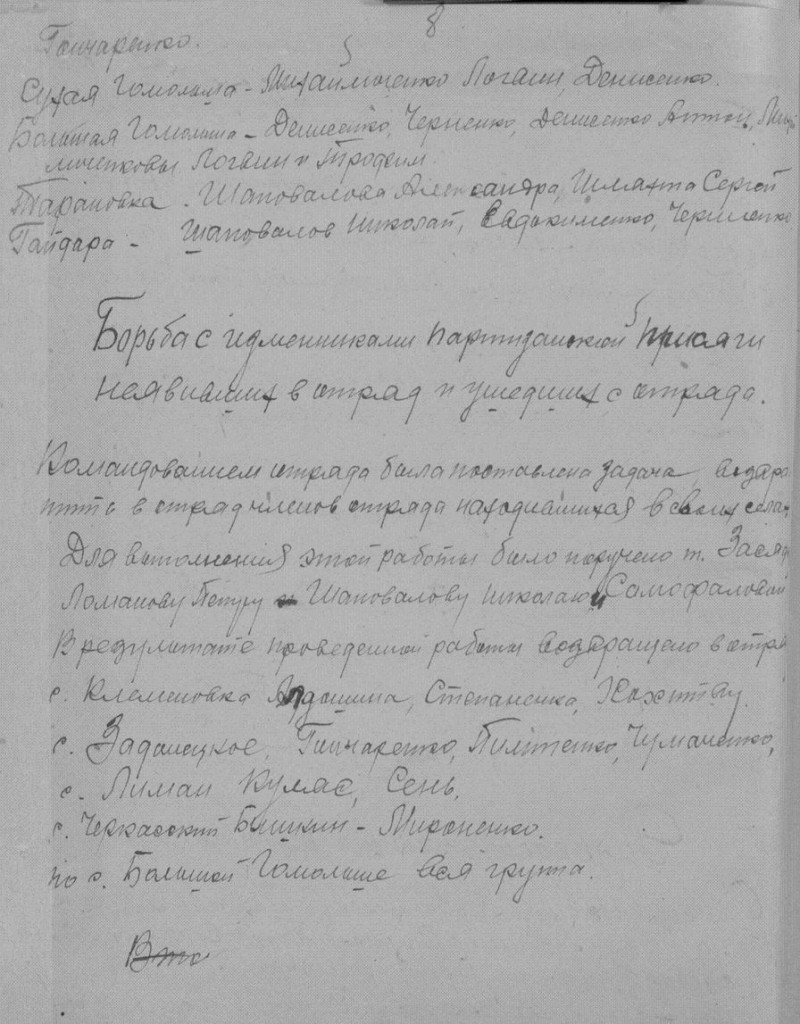 8
Гончаренко.
Сухая Гомольша - Михайличенко Логвин, Денисенко.
Большая Гомольша - Денисенко, Черненко, Денисенко Антон, Михай
личенковы Логвин и Трофим
Тарановка. Шаповалова Александра, Шляхта Сергей
Гайдара - Шаповалов Николай, Евдокименко, Черненко
Борьба с изменниками партизанской присяги
неявивших в отряд и ушедших с отряда.
Командованием отряда была поставлена задача возвра
тить в отряд членов отряда находившихся в своих селах
Для выполнения этой работы было поручено т.
Ломанову Петру и Шаповалову Николаю и Самофаловой
В результате проведенной работы возвращено в отря
с. Клеменовка Ардашина, Степаненка,
с. Задонецкое, Гончаренко, Пилипенко, Чумаченко,
с. Лиман Кулас, Сень.
с. Черкасский Бишкин - Мироненко.
по с. Большой Гомольше вся группа.